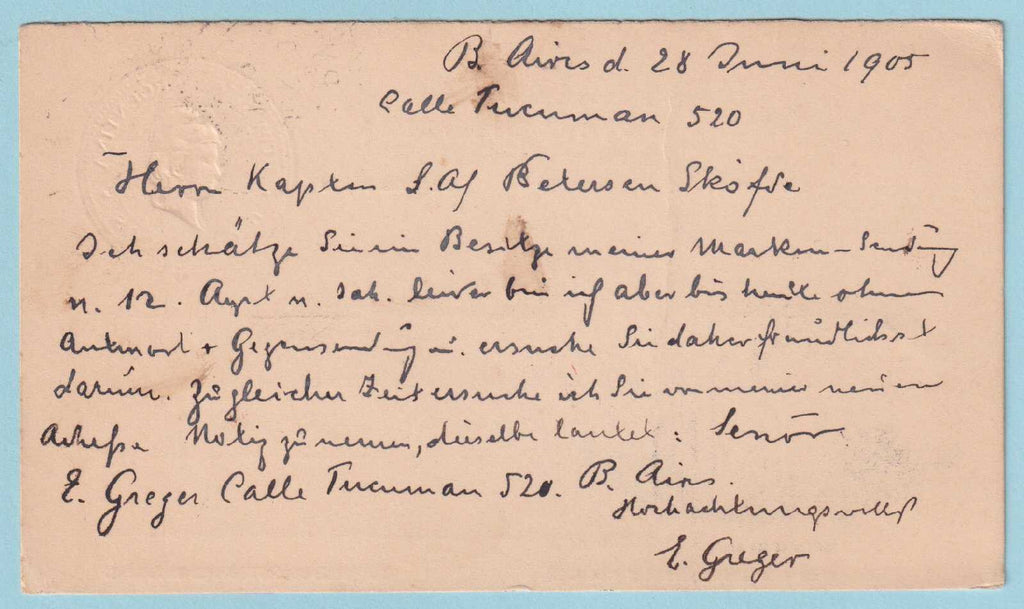 B. Aires d. 28 Juni 1905
Calle Tucuman 520
Herrn Kapten S. Af Petersen Sköfde
Ich schätze Sie im Besitze meiner Marken-Sendung
v. 12. Apr. u. leider bin ich aber bis heute ohne
Antwort + Gegensendung u. ersuche Sie daher freundlichst
darum. Zu gleicher Zeit ersuche ich Sie von meiner neuen
Adresse Notiz zu nemen, dieselbe lautet: Senõr
E. Greger Calle Tucuman 520. B. Aires.
Hochachtungsvollst
E. Greger